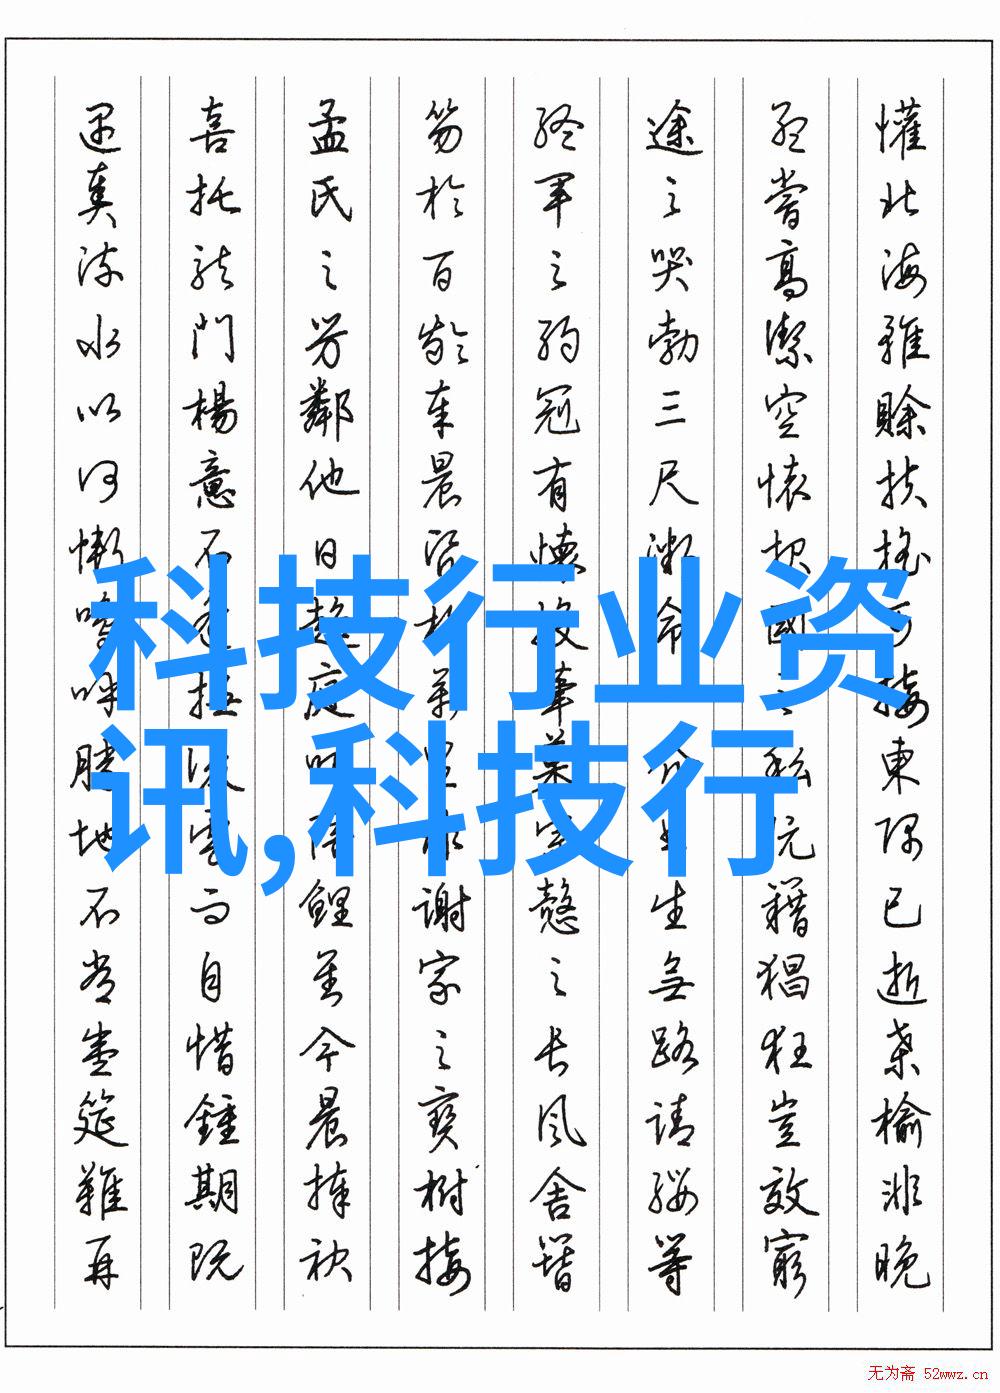 懽北海雖賒扶搖可接東隅已逝桑榆非晚
孟嘗高潔空懷报國之私阮籍猖狂豈效窮
途之哭勃三尺微命介生無路請纓等
終軍之弱冠有懷投筆慕宗愨之長風舍簪
笏於百齡奉晨昏於萬里非謝家之寶樹接
孟氏之芳鄰他日趨庭叨陪鯉對今晨捧袂
喜托龍門楊意不逢撫淩雲而自惜鍾期既
遇奏流水以何慚嗚呼勝地不常盛筵難再
科技行业资
讯,科技行
无为斋 52wwz.cn